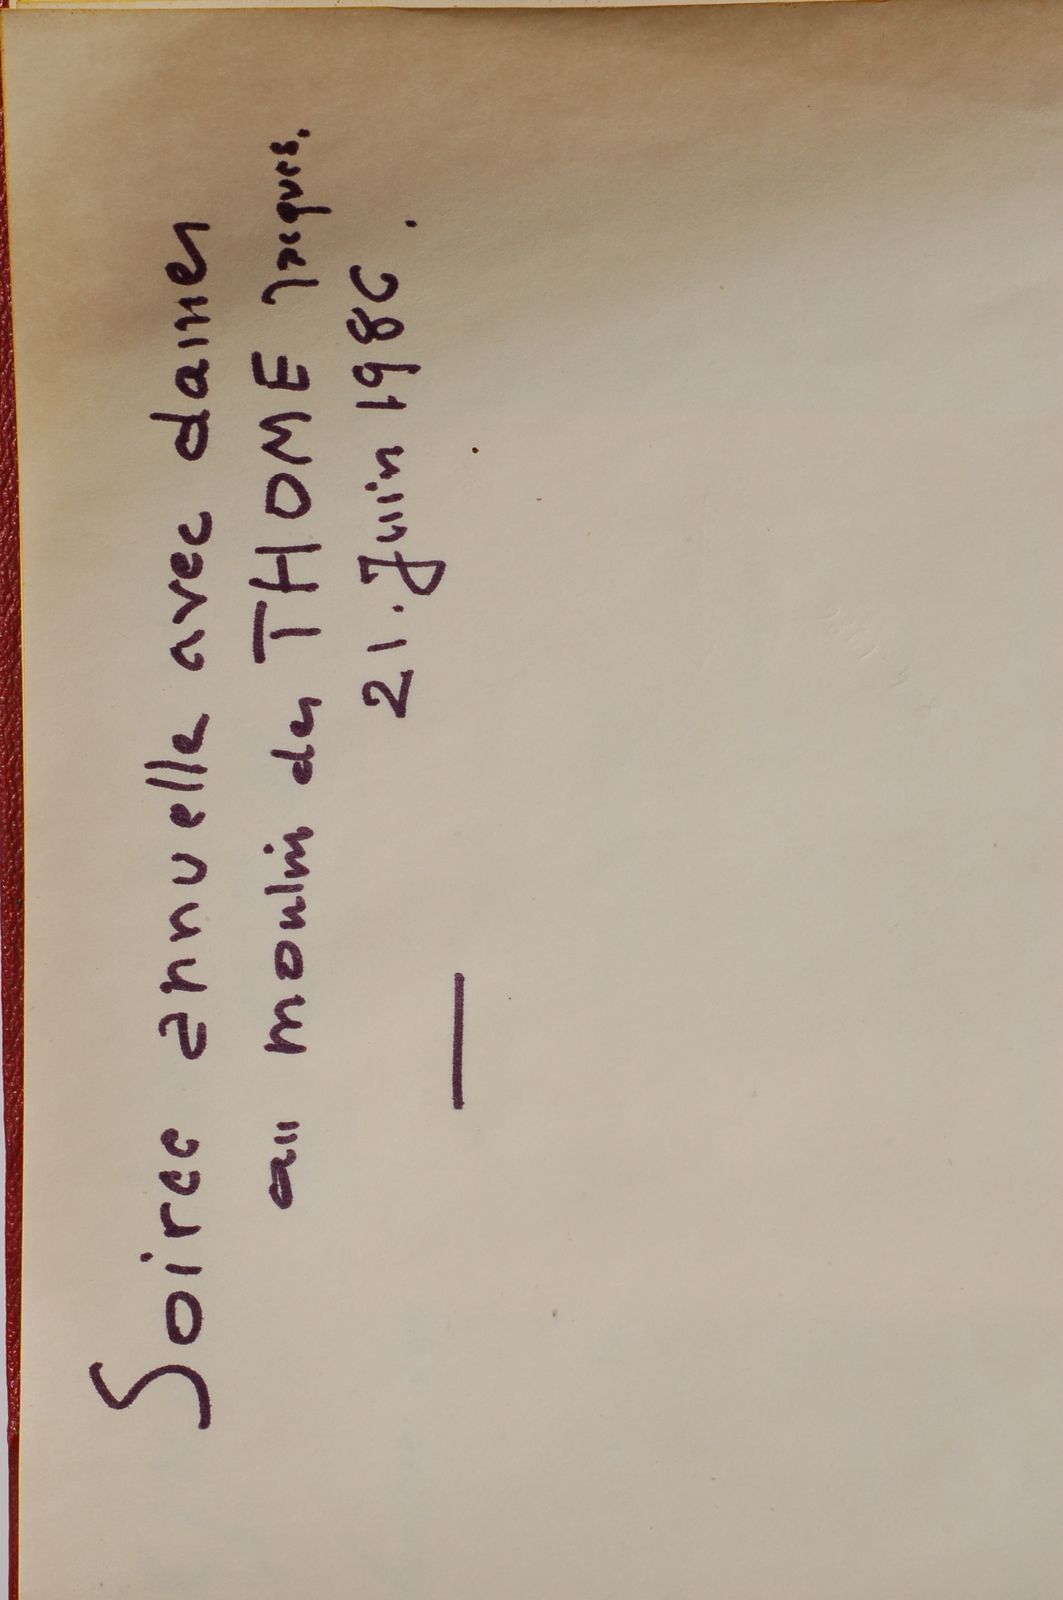 Soiree annuelle avec dames
au moulin des THOME Jacques.
21. Juin 1986.